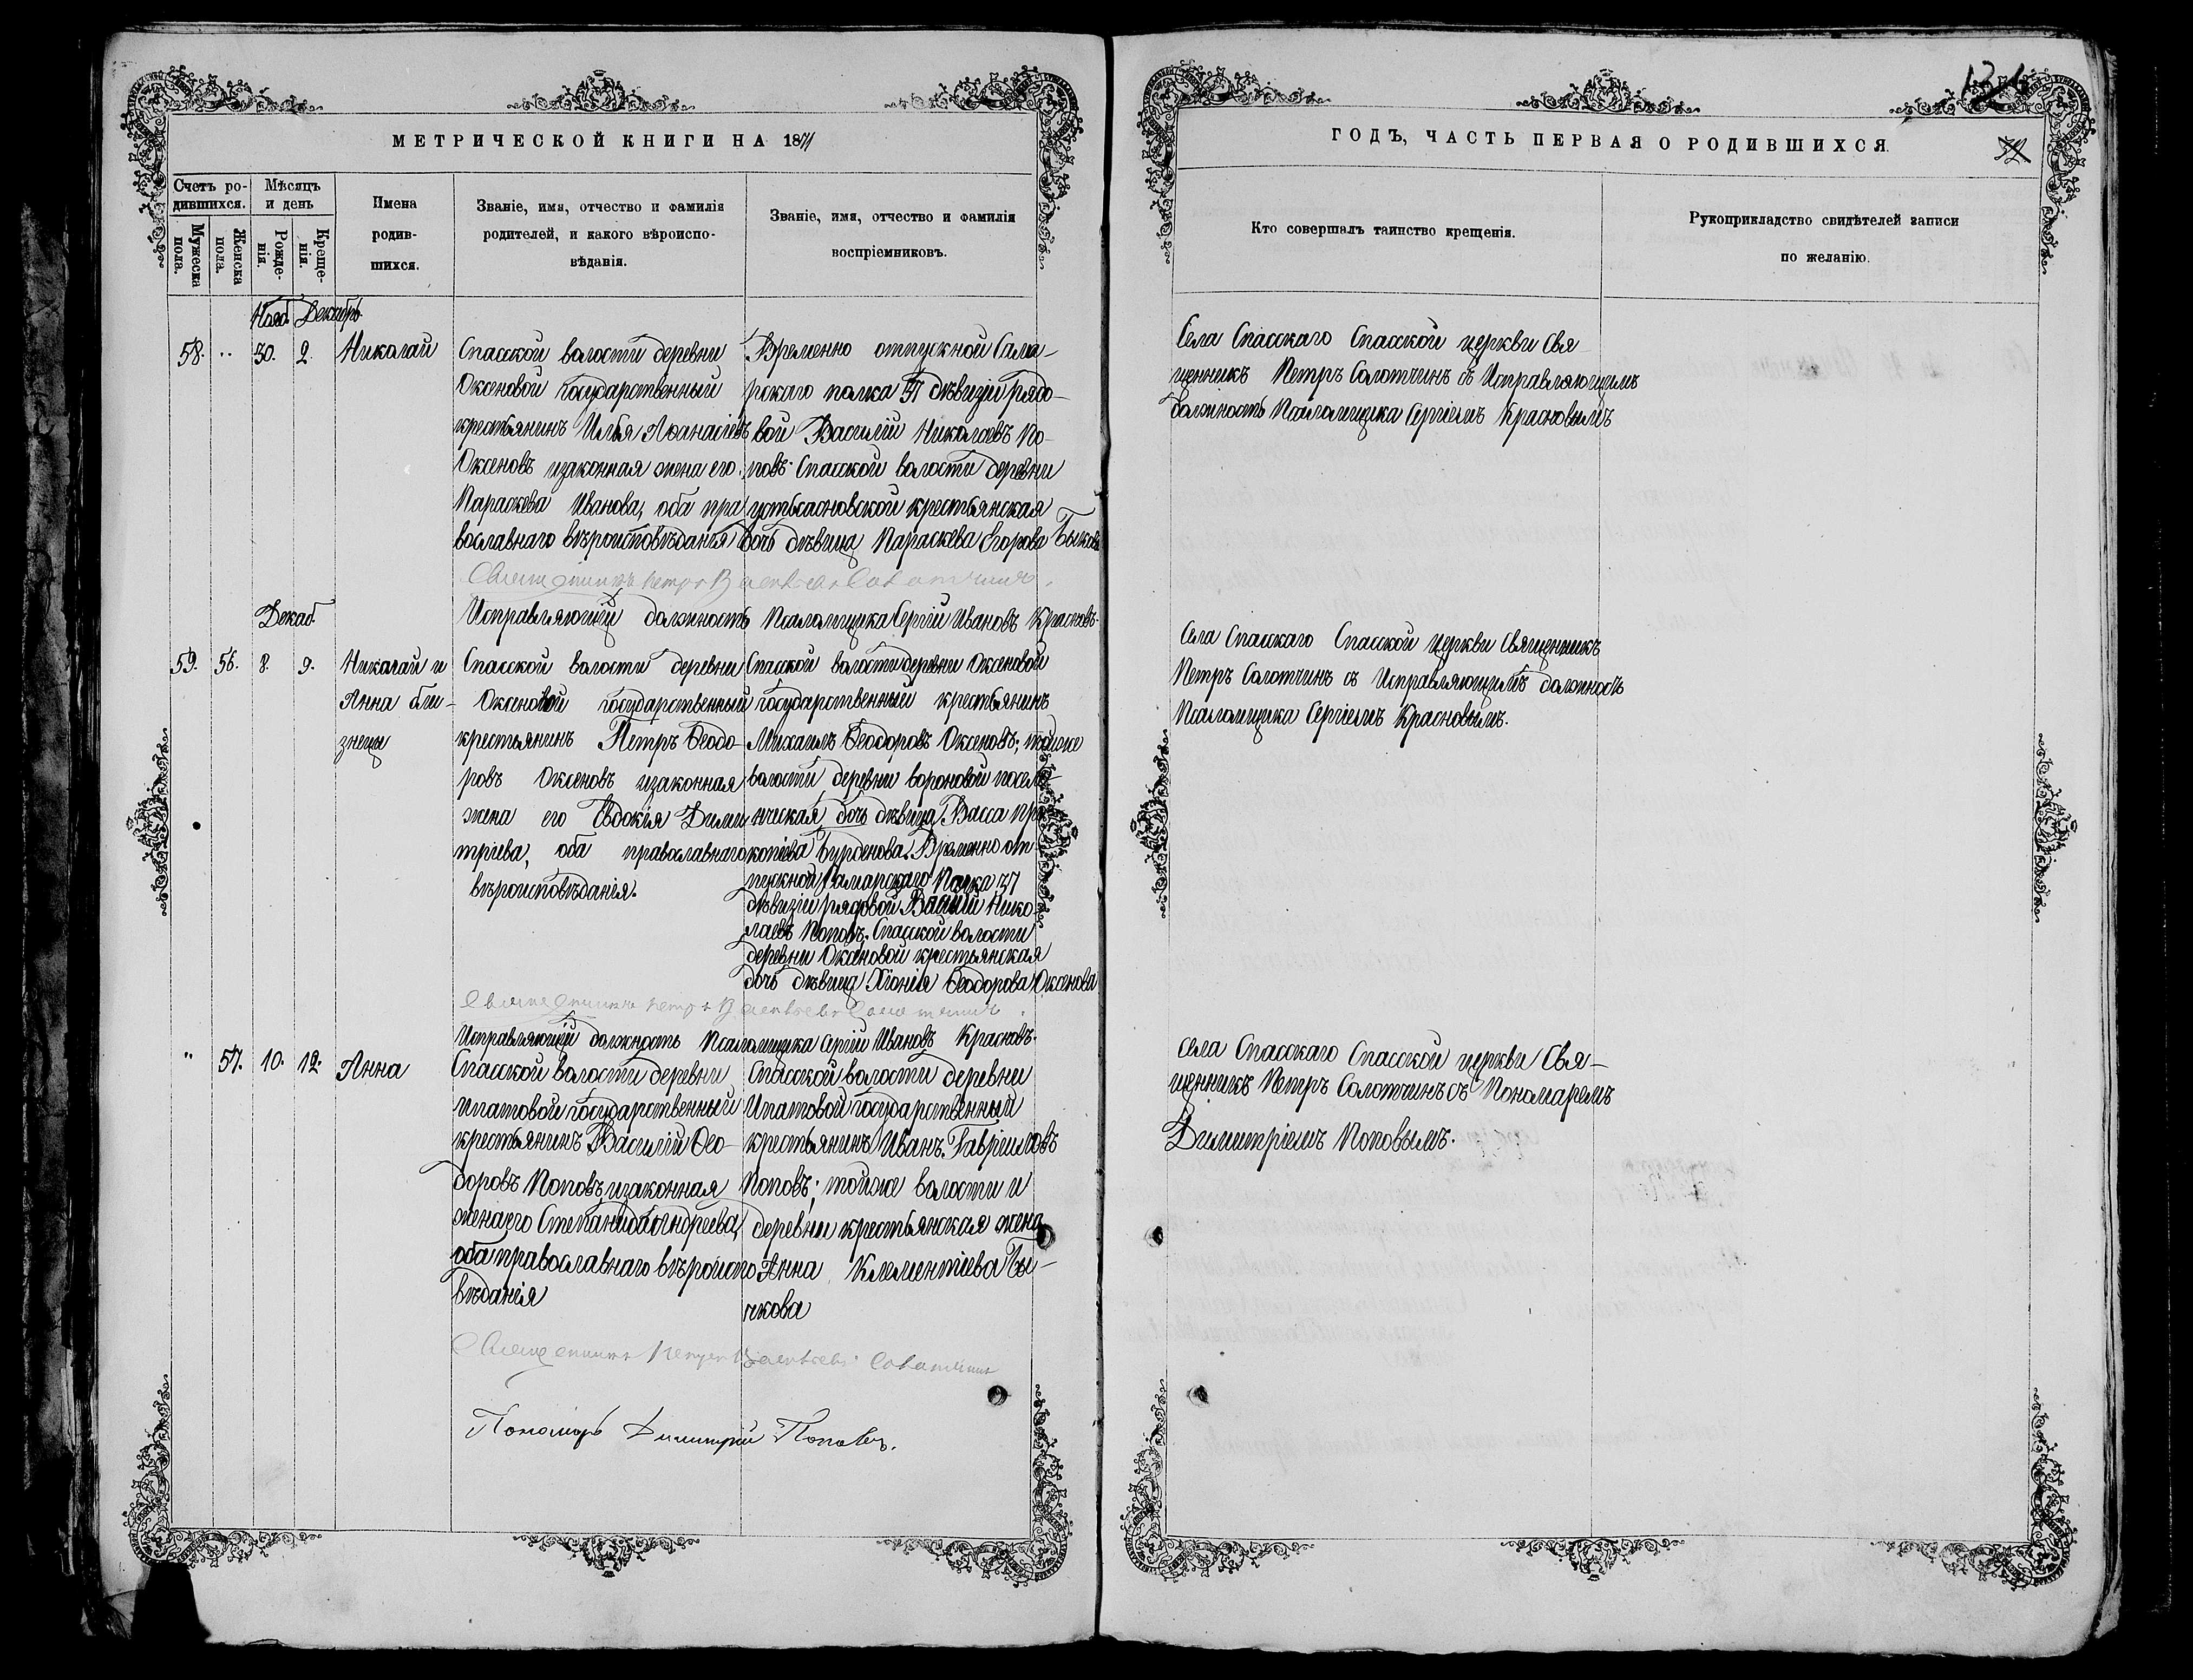 МЕТРИЧЕСКОЙ КНИГИ НА 1871
Счетъ родившихся.
Мѣсяцъ и день
Имена родив-
шихся.
Званіе, имя, отчество и фамилія
родителей, и какого вѣроиспо-
вѣданія.
Званіе, имя, отчество и фамилія
воспріемниковъ.
Мужеска пола.
Женска пола.
Рожде-
нія.
Креще-
нія.
Нояб. Декабрь
58. „ 30. 2. Николай
Спасской волости деревни
Оксеновой государственный
крестьянинъ Илья Аѳанасіевъ
Оксеновъ изаконная жена его
Параскева Иванова, оба пра
вославнаго вѣроисповѣданія
Временно отпускной Сама-
рскаго полка 37 дѣвизіи рядо-
вой Василій Николаевъ По-
повъ. Спасской волости деревни
устьсосновской крестьянская
дочь дѣвица Параскева Егорова Бычкова
Священникъ Петръ Солотчинъ.
Исправляющій должность Псаломщика Сергій Ивановъ Красновъ.
Декаб.
59. 56. 8. 9. Николай и
Анна бли-
знецы
Спасской волости деревни
Оксеновой государственный
крестьянинъ Петръ Ѳеодо-
ровъ Оксеновъ изаконная
жена его Евдокія Дими
тріева, оба православнаго
вѣроисповѣданія.
Спасской волости деревни Оксеновой
государственный крестьянинъ
Михаилъ Ѳеодоровъ Оксеновъ; тойже
волости деревни вороновой посел-
ническая дочь дѣвица Васса Про
копіева Бурденова. Временно от
пускной Самарскаго Полка 37
дѣвизіи рядовой Василій Нико-
лаевъ Поповъ. Спасской волости
деревни Оксеновой крестьянская
дочь дѣвица Хіонія Ѳеодорова Оксенова
Священникъ Петръ Солотчинъ.
Исправляющій должность Псаломщика Сергій Ивановъ Красновъ.
„ 57. 10. 12. Анна
Спасской волости деревни
Ипатовой государственный
крестьянинъ Василій Ѳео-
доровъ Поповъ изаконная
жена его Степанида Андреева,
оба православнаго вѣроиспо
вѣданія
Спасской волости деревни
Ипатовой государственный
крестьянинъ Иванъ Гавріиловъ
Поповъ; тойже волости и
деревни крестьянская жена
Анна Клементіева Бы-
чкова
Священникъ Петръ Солотчинъ
Пономарь Димитрій Поповъ.
ГОДЪ, ЧАСТЬ ПЕРВАЯ О РОДИВШИХСЯ
Кто совершалъ таинство крещенія.
Рукоприкладство свидѣтелей записи
по желанію.
Села Спасскаго Спасской церкви Свя-
щенникъ Петръ Солотчинъ съ Исправляющимъ
должность Псаломщика Сергіемъ Красновымъ
Села Спасскаго Спасской церкви Священникъ
Петръ Солотчинъ съ Исправляющимъ должность
Псаломщика Сергіемъ Красновымъ.
Села Спасскаго Спасской церкви Свя-
щенникъ Петръ Солотчинъ съ Пономаремъ
Димитріемъ Поповымъ.